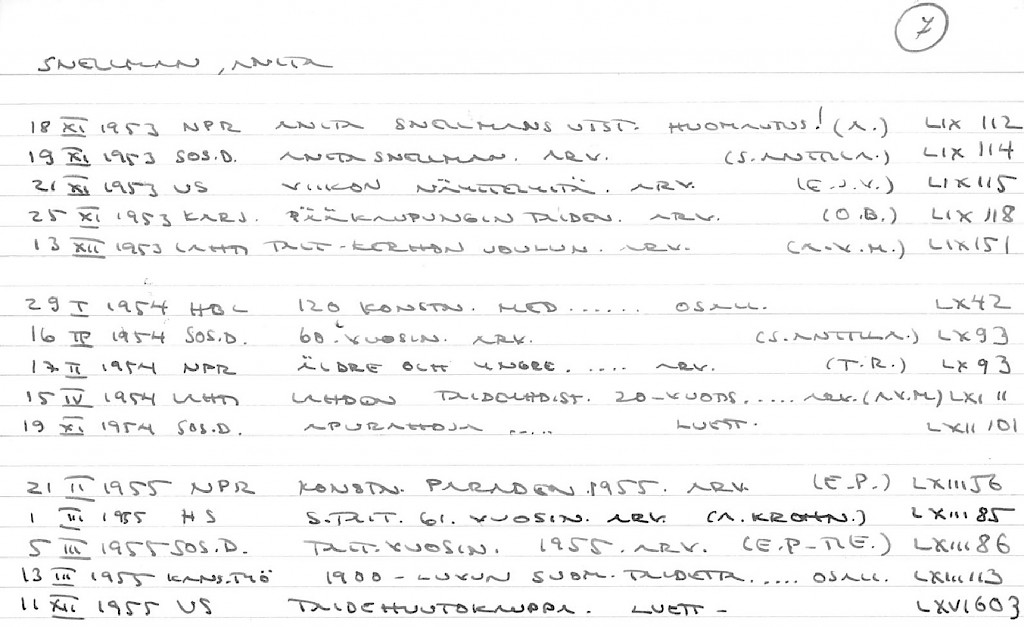 7
SNELLMAN, ANITA
18 XI 1953 NPR ANITA SNELLMANS UTST. HUOMAUTUS! (A.) LIX 112
19 XI 1953 SOS.D. ANITA SNELLMAN. ARV. (S. ANTTILA.) LIX 114
21 XI 1953 US VIIKON NÄYTTELYITÄ. ARV. (E.J.V.) LIX 115
25 XI 1953 KARJ. PÄÄKAUPUNGIN TAIDEN. ARV. (O.B.) LIX 118
13 XII 1953 LAHTI TAIT-KERHON JOULUN. ARV. (A.V.M.) LIX 151
29 I 1954 HBL 120 KONSTN. MED ...... OSALL. LX 42
16 II 1954 SOS.D. 60. VUOSIN. ARV. (S. ANTTILA.) LX 93
17 II 1954 NPR ÄLDRE OCH YNGRE. .... ARV. (T.R.) LX 93
15 IV 1954 LAHTI LAHDEN TAIDEYHDIST. 20-VUOTIS. .... ARV. (A.V.M) LXI 11
19 XI 1954 SOS.D. APURAHOJA ..... LUETT. LXII 101
21 II 1955 NPR KONSTN. PARADEN 1955. ARV. (E.P.) LXIII 56
1 III 1955 HS S.TAIT. 61. VUOSIN. ARV. (A. KROHN.) LXIII 85
5 III 1955 SOS.D. TAIT.VUOSIN. 1955. ARV. (E.P-RE.) LXIII 86
13 III 1955 KANS.TYÖ 1900-LUVUN SUOM. TAIDETTA ..... OSALL. LXIII 113
11 XII 1955 US TAIDEHUUTOKAUPPA. LUETT- LXVI 603